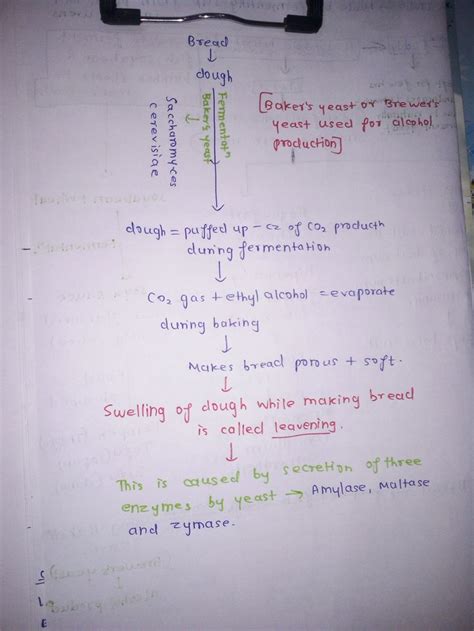 Bread
dough
Fermentatn
Baker's yeast
Saccharomyces
cerevisiae
[Baker's yeast or Brewer's
yeast used for alcohol
production]
dough = puffed up - cz of CO2 productn
during fermentation
CO2 gas + ethyl alcohol = evaporate
during baking
Makes bread porous + soft.
Swelling of dough while making bread
is called leavening.
This is caused by secretion of three
enzymes by yeast → Amylase, Maltase
and zymase.